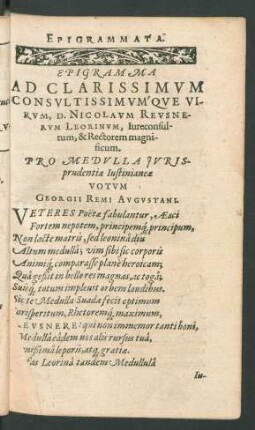 EPIGRAMMATA.
EPIGRAMMA
AD CLARISSIMVM
CONSVLTISSIMVM'QVE VI-
RVM, D. NICOLAVM REVSNE-
RVM LEORINVM, Iureconsul-
tum, & Rectorem magni-
ficum.
PRO MEDVLLA IVRIS-
prudentiæ Iustinianeæ
VOTVM
GEORGII REMI AVGVSTANI.
VETERES Poëtæ fabulantur, Æaci
Fortem nepotem, principemq́, principum,
Non lacte matris, sed leonina diu
Altum medullâ; vim sibi sic corporis
Animiq́, comparasse planè heroicam;
Quâ gessit in bello res magnas, ac togâ;
Suisq́, totum impleuit orbem laudibus.
Sic te Medulla Suada fecit optimum
orisperitum, Rhetoremq́, maximum,
EVSNERE! qui non immemor tanti boni,
Medullâ eâdem nos alis rursus tuâ,
leporis, atq, gratiæ.
Leorinâ tandem Medullulâ
Iu-